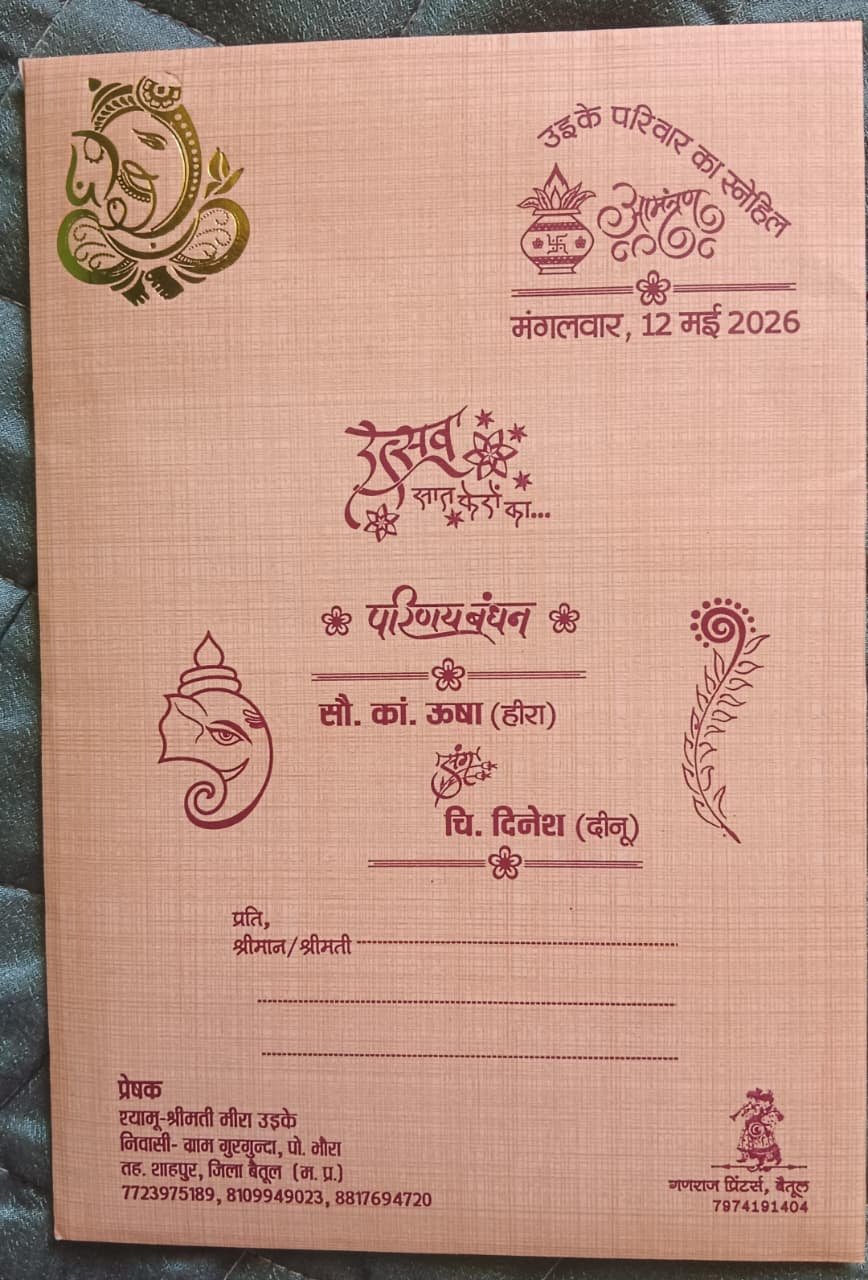 उइके परिवार का स्नेहिल
आमंत्रण
मंगलवार, 12 मई 2026
उत्सव
सात फेरों का...
परिणय बंधन
सौ. कां. ऊषा (हीरा)
संग
चि. दिनेश (दीनू)
प्रति,
श्रीमान/श्रीमती
प्रेषक
श्यामू-श्रीमती मीरा उइके
निवासी- ग्राम गुरगुन्दा, पो. भौरा
तह. शाहपुर, जिला बैतूल (म. प्र.)
7723975189, 8109949023, 8817694720
गणराज प्रिंटर्स, बैतूल
7974191404